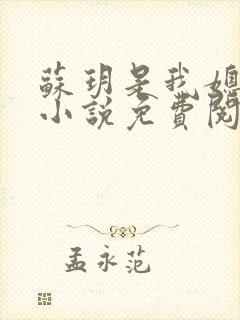 蘇玥是我媳
小說免費閱
孟永范